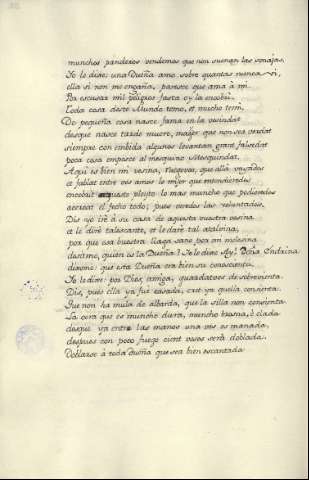 munchos panderos vendemos que non suenan las sonajas.
Yo le dixe: una Dueña amo sobre quantas nunca vi,
ella si non me engaña, paresce que ama á mi
Por escusar mil peligros fasta oy la encobrí.
Toda cosa deste Mundo temo, et mucho temí.
De pequeña cosa nasce fama en la vesindat
desque nasce tarde muere, maguer que non sea verdat
siempre con embidia algunos levantan grant falsedat
poca cosa empesce al mesquino mesquindat.
Aquí es bien mi vesina, ruegovos, que allá vayades
et fablat entre vos amos lo mejor que entendierdes
encobrit aqueste pleyto lo mas muncho que podierdes
acertad el fecho todo; pues vierdes las voluntades.
Dis yo iré á su casa de aquesta vuestra vesina
et le diré tal escante, et le daré tal atalvina,
por que esa vuestra llaga sane por mi melesina
desidme, quien es la Dueña? Yo le dixe Ay! Doña Endrina
dixome: que esta Dueña era bien su conoscienta
Yo le dixe: por Dios, amiga, guardatvos de sobervienta
Dis, pues ella ya fue casada, creet que
que non ha mula de albarda, que la silla non consienta
La cera que es muncho dura, muncho brosna, é elada
desque ya entre las manos una ves es
despues con poco fuego cient veses será doblada.
Doblarse á toda dueña que sea bien escantada